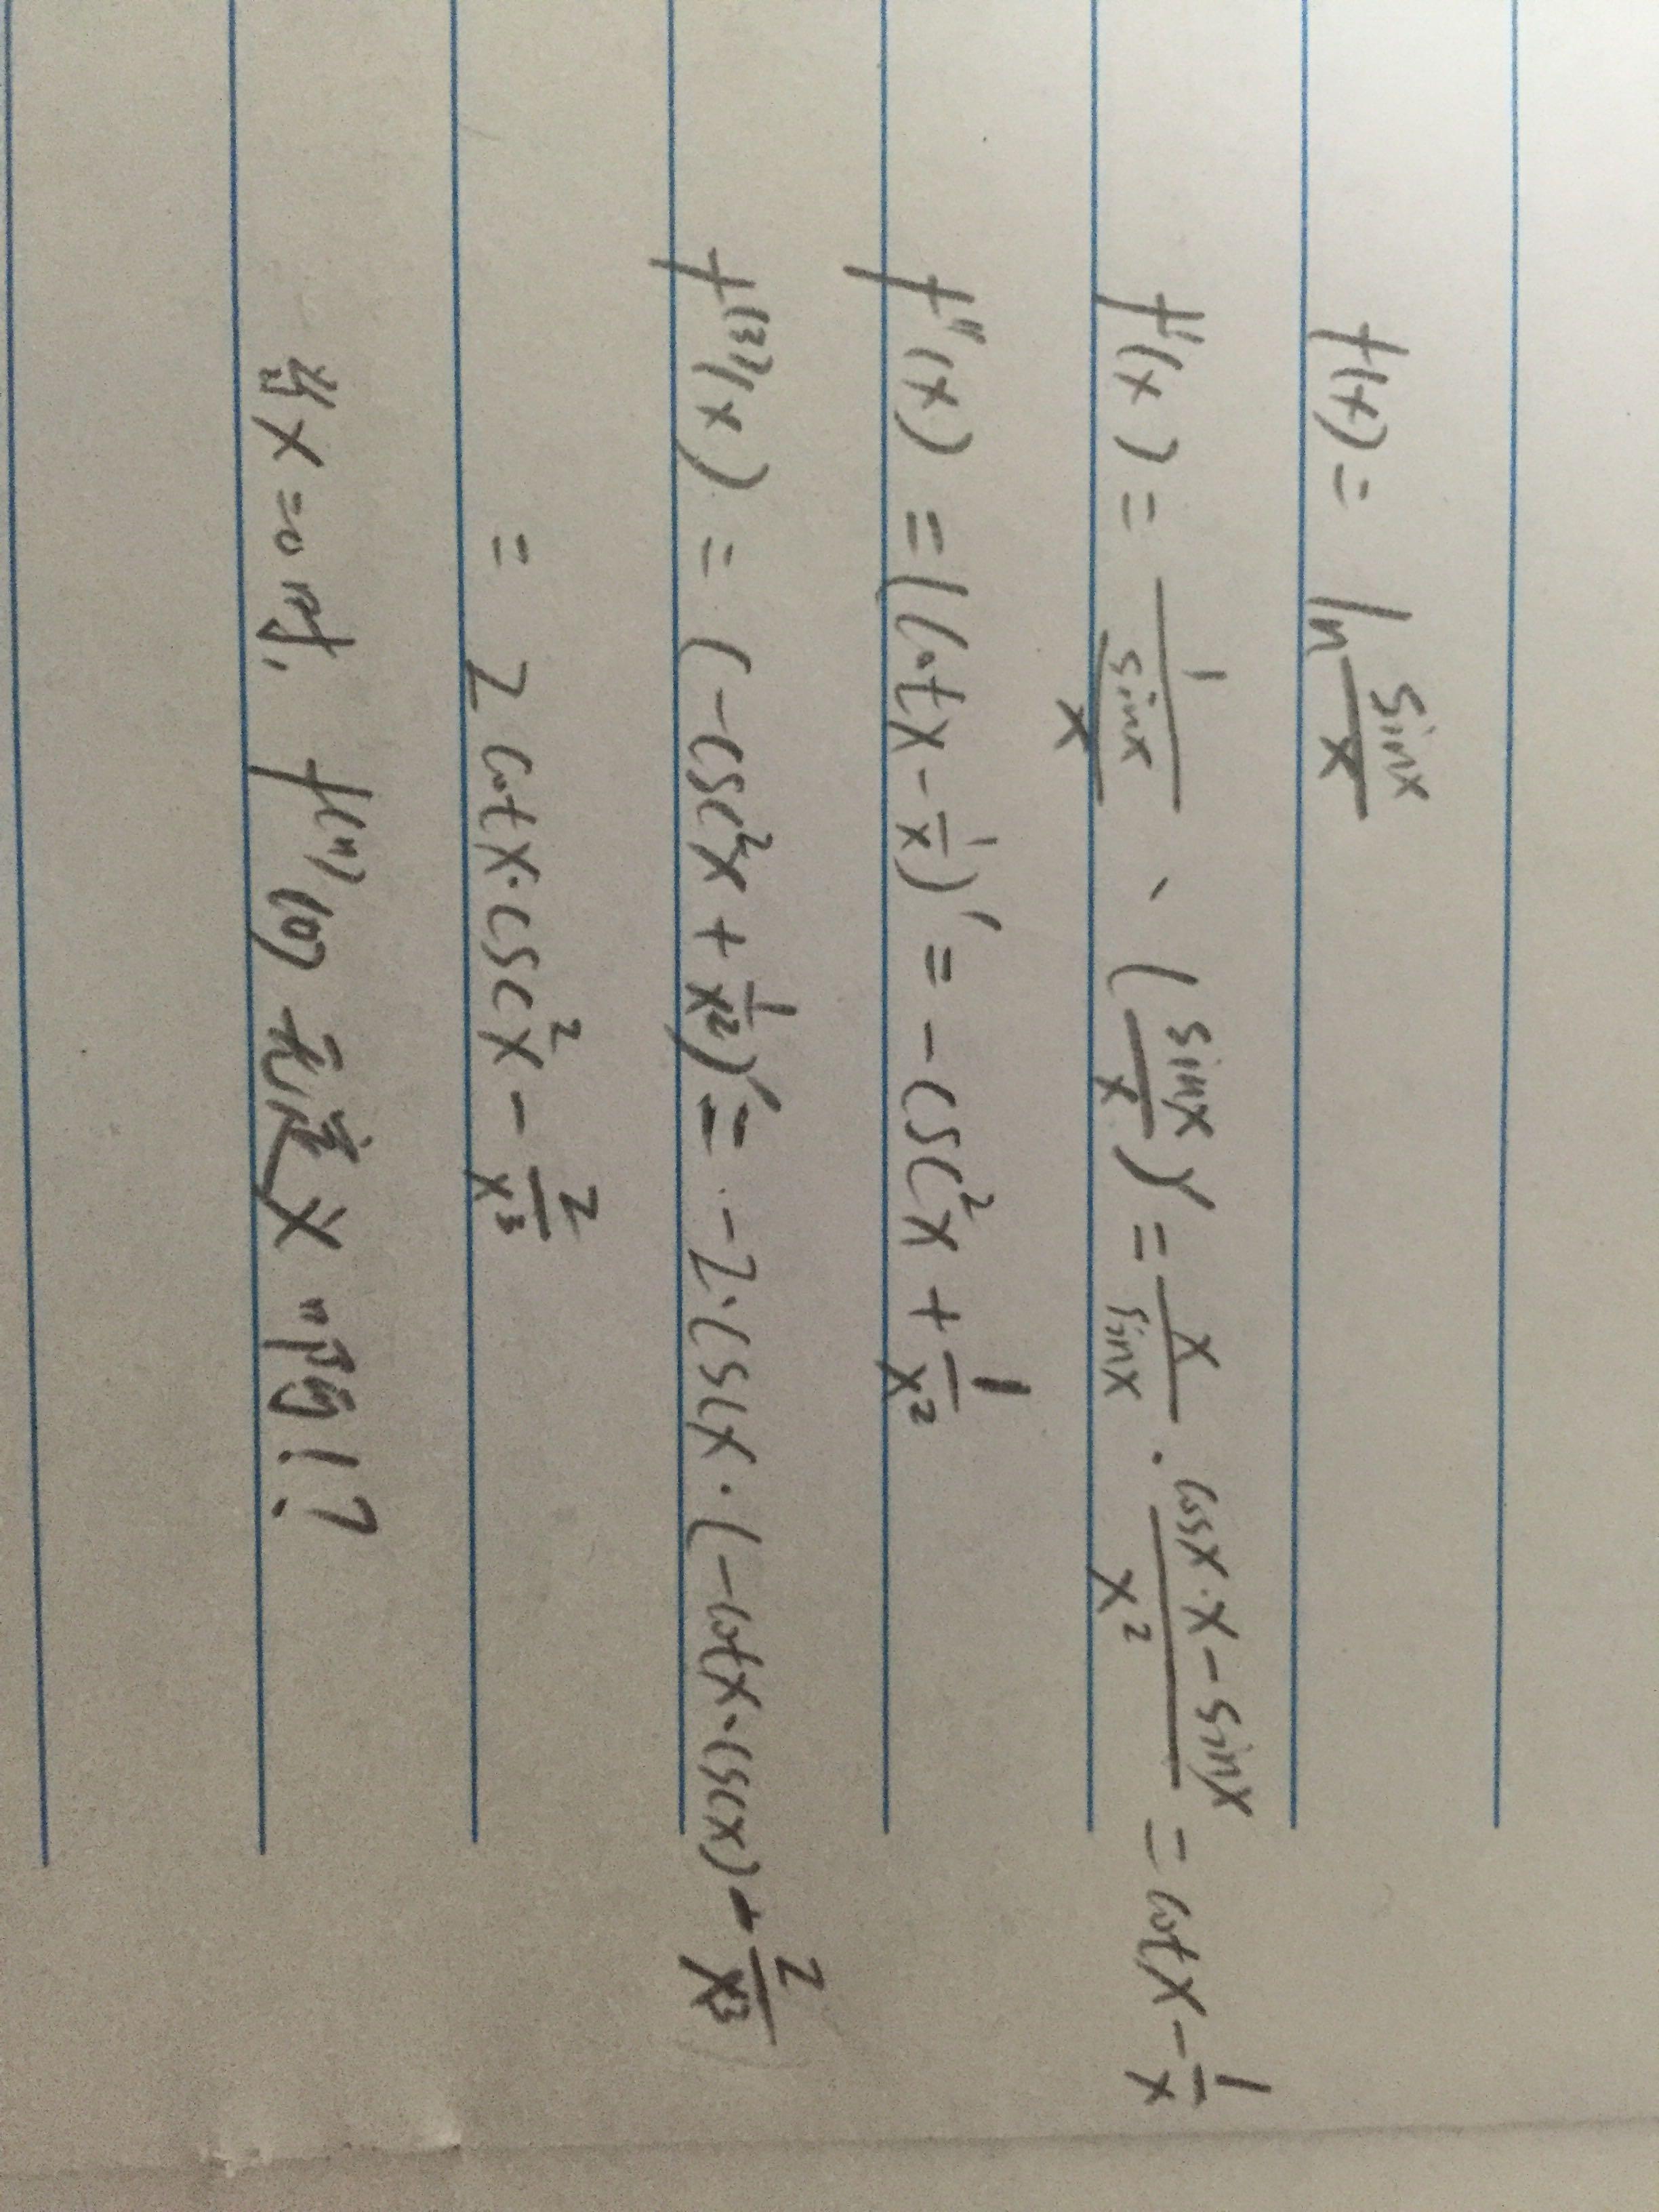 f(x) = ln sinx/x
f'(x) = 1/(sinx/x) · (sinx/x)' = x/sinx · (cosx·x-sinx)/x² = cotx - 1/x
f''(x) = (cotx - 1/x)' = -csc²x + 1/x²
f⁽³⁾(x) = (-csc²x + 1/x²)' = -2·cscx·(-cotx·cscx) + -2/x³
= 2cotx·csc²x - 2/x³
当x=0时, f⁽ⁿ⁾(0) 无意义啊!?